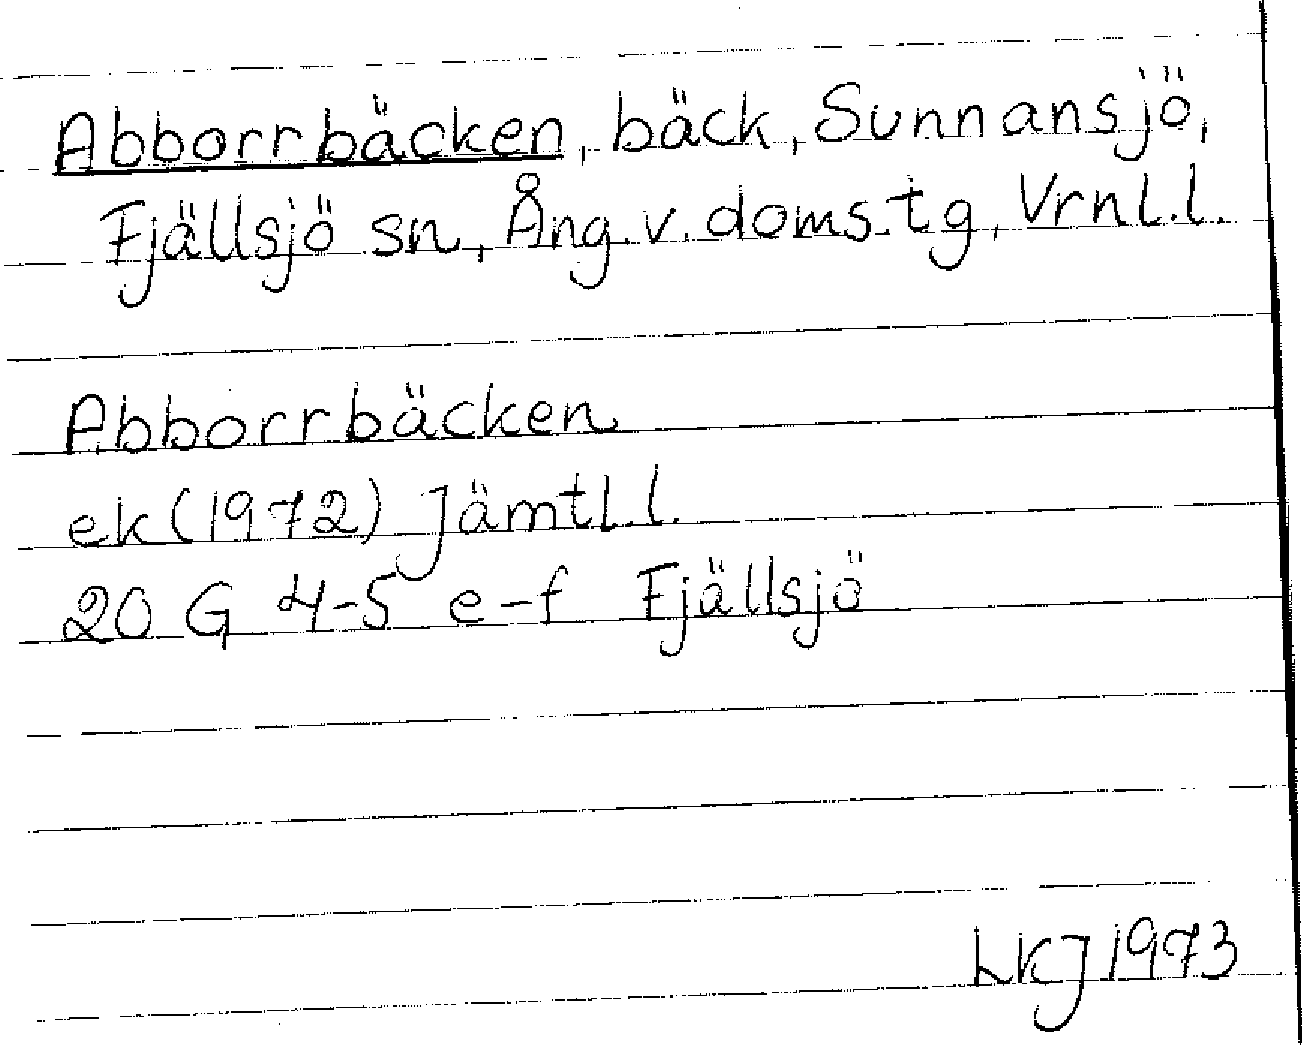 Abborrbäcken, bäck, Sunnansjö,
Fjällsjö sn, Ång.v.doms.tg, Vrnl.l.
Abborrbäcken
ek (1972) Jämtl.l.
20 G 4-5 e-f Fjällsjö
LKJ 1973